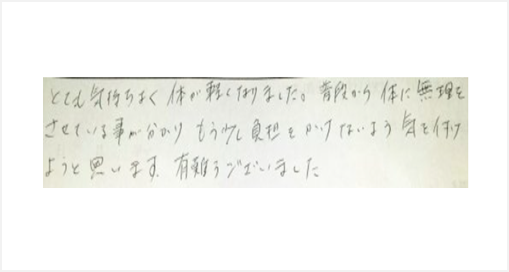 とても気持ちよく 体が軽くなりました。普段から 体に無理を
させている事が分かり もう少し負担をかけないよう 気を付け
ようと思います。有難うございました